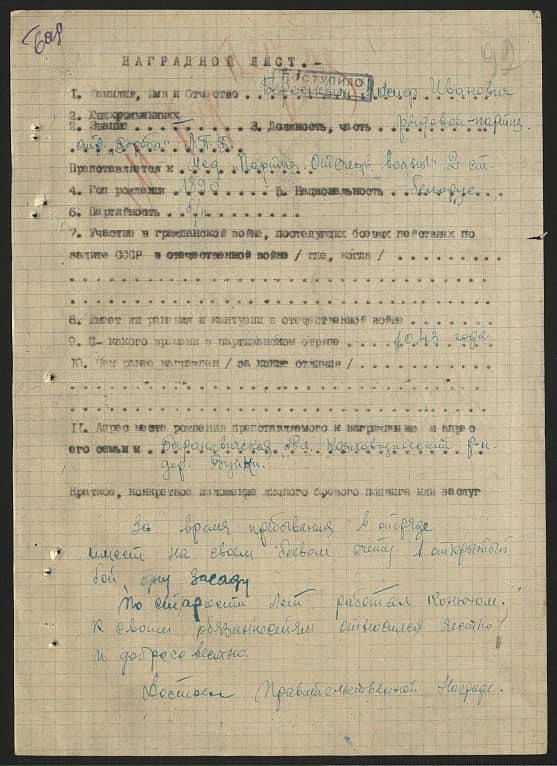 НАГРАДНОЙ ЛИСТ.-
ПОСТУПИЛО
1. Фамилия, Имя и Отчество Иванович
2. Звание 3. Должность, часть рядовой-партиз.
отр. Л.П.Б.
Представляется к Мед. "Партиз. Отечеств. войны" 2 ст.
4. Год рождения 1890 5. Национальность белорус
6. Партийность б/п
7. Участие в гражданской войне, последующих боевых действиях по
защите СССР в отечественной войне / где, когда /
8. Имеет ли ранения и контузии в отечественной войне
9. С какого времени в партизанском отряде 1943 года
10. Чем ранее награжден / за какие отличия /
11. Адрес места рождения представляемого к награждению и адрес
его семьи Барановичская обл. Козловщинский р-н
дер. Буйки.
Краткое, конкретное изложение личного боевого подвига или заслуг
За время пребывания в отряде
имеет на своем боевом счету 1 открытый
бой одну засаду
По старости лет работал конюхом.
К своим обязанностям относился честно
и добросовестно
Достоен Правительственной Награде.